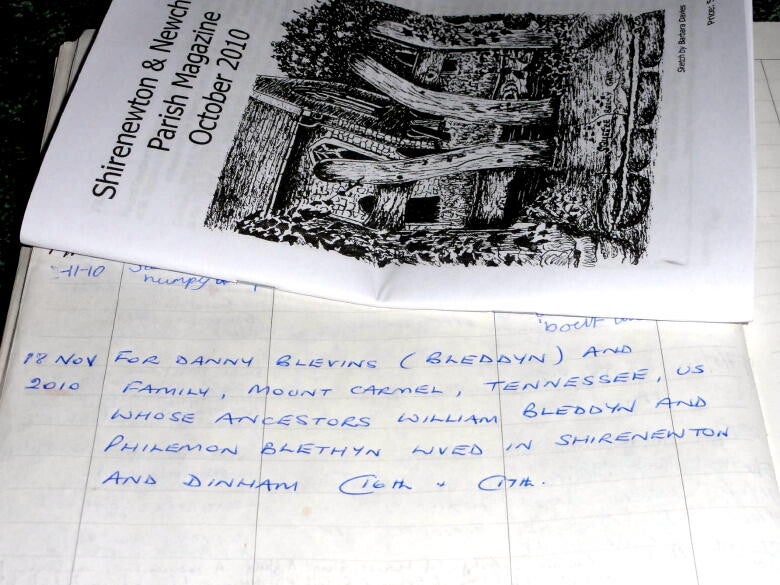 Shirenewton & Newch
Parish Magazine
October 2010
Sketch by Barbara Davies
Price:
-11-10
18 NOV
2010
FOR DANNY BLEVINS (BLEDDYN) AND
FAMILY, MOUNT CARMEL, TENNESSEE, US
WHOSE ANCESTORS WILLIAM BLEDDYN AND
PHILEMON BLETHYN LIVED IN SHIRENEWTON
AND DINHAM C16th & C17th.